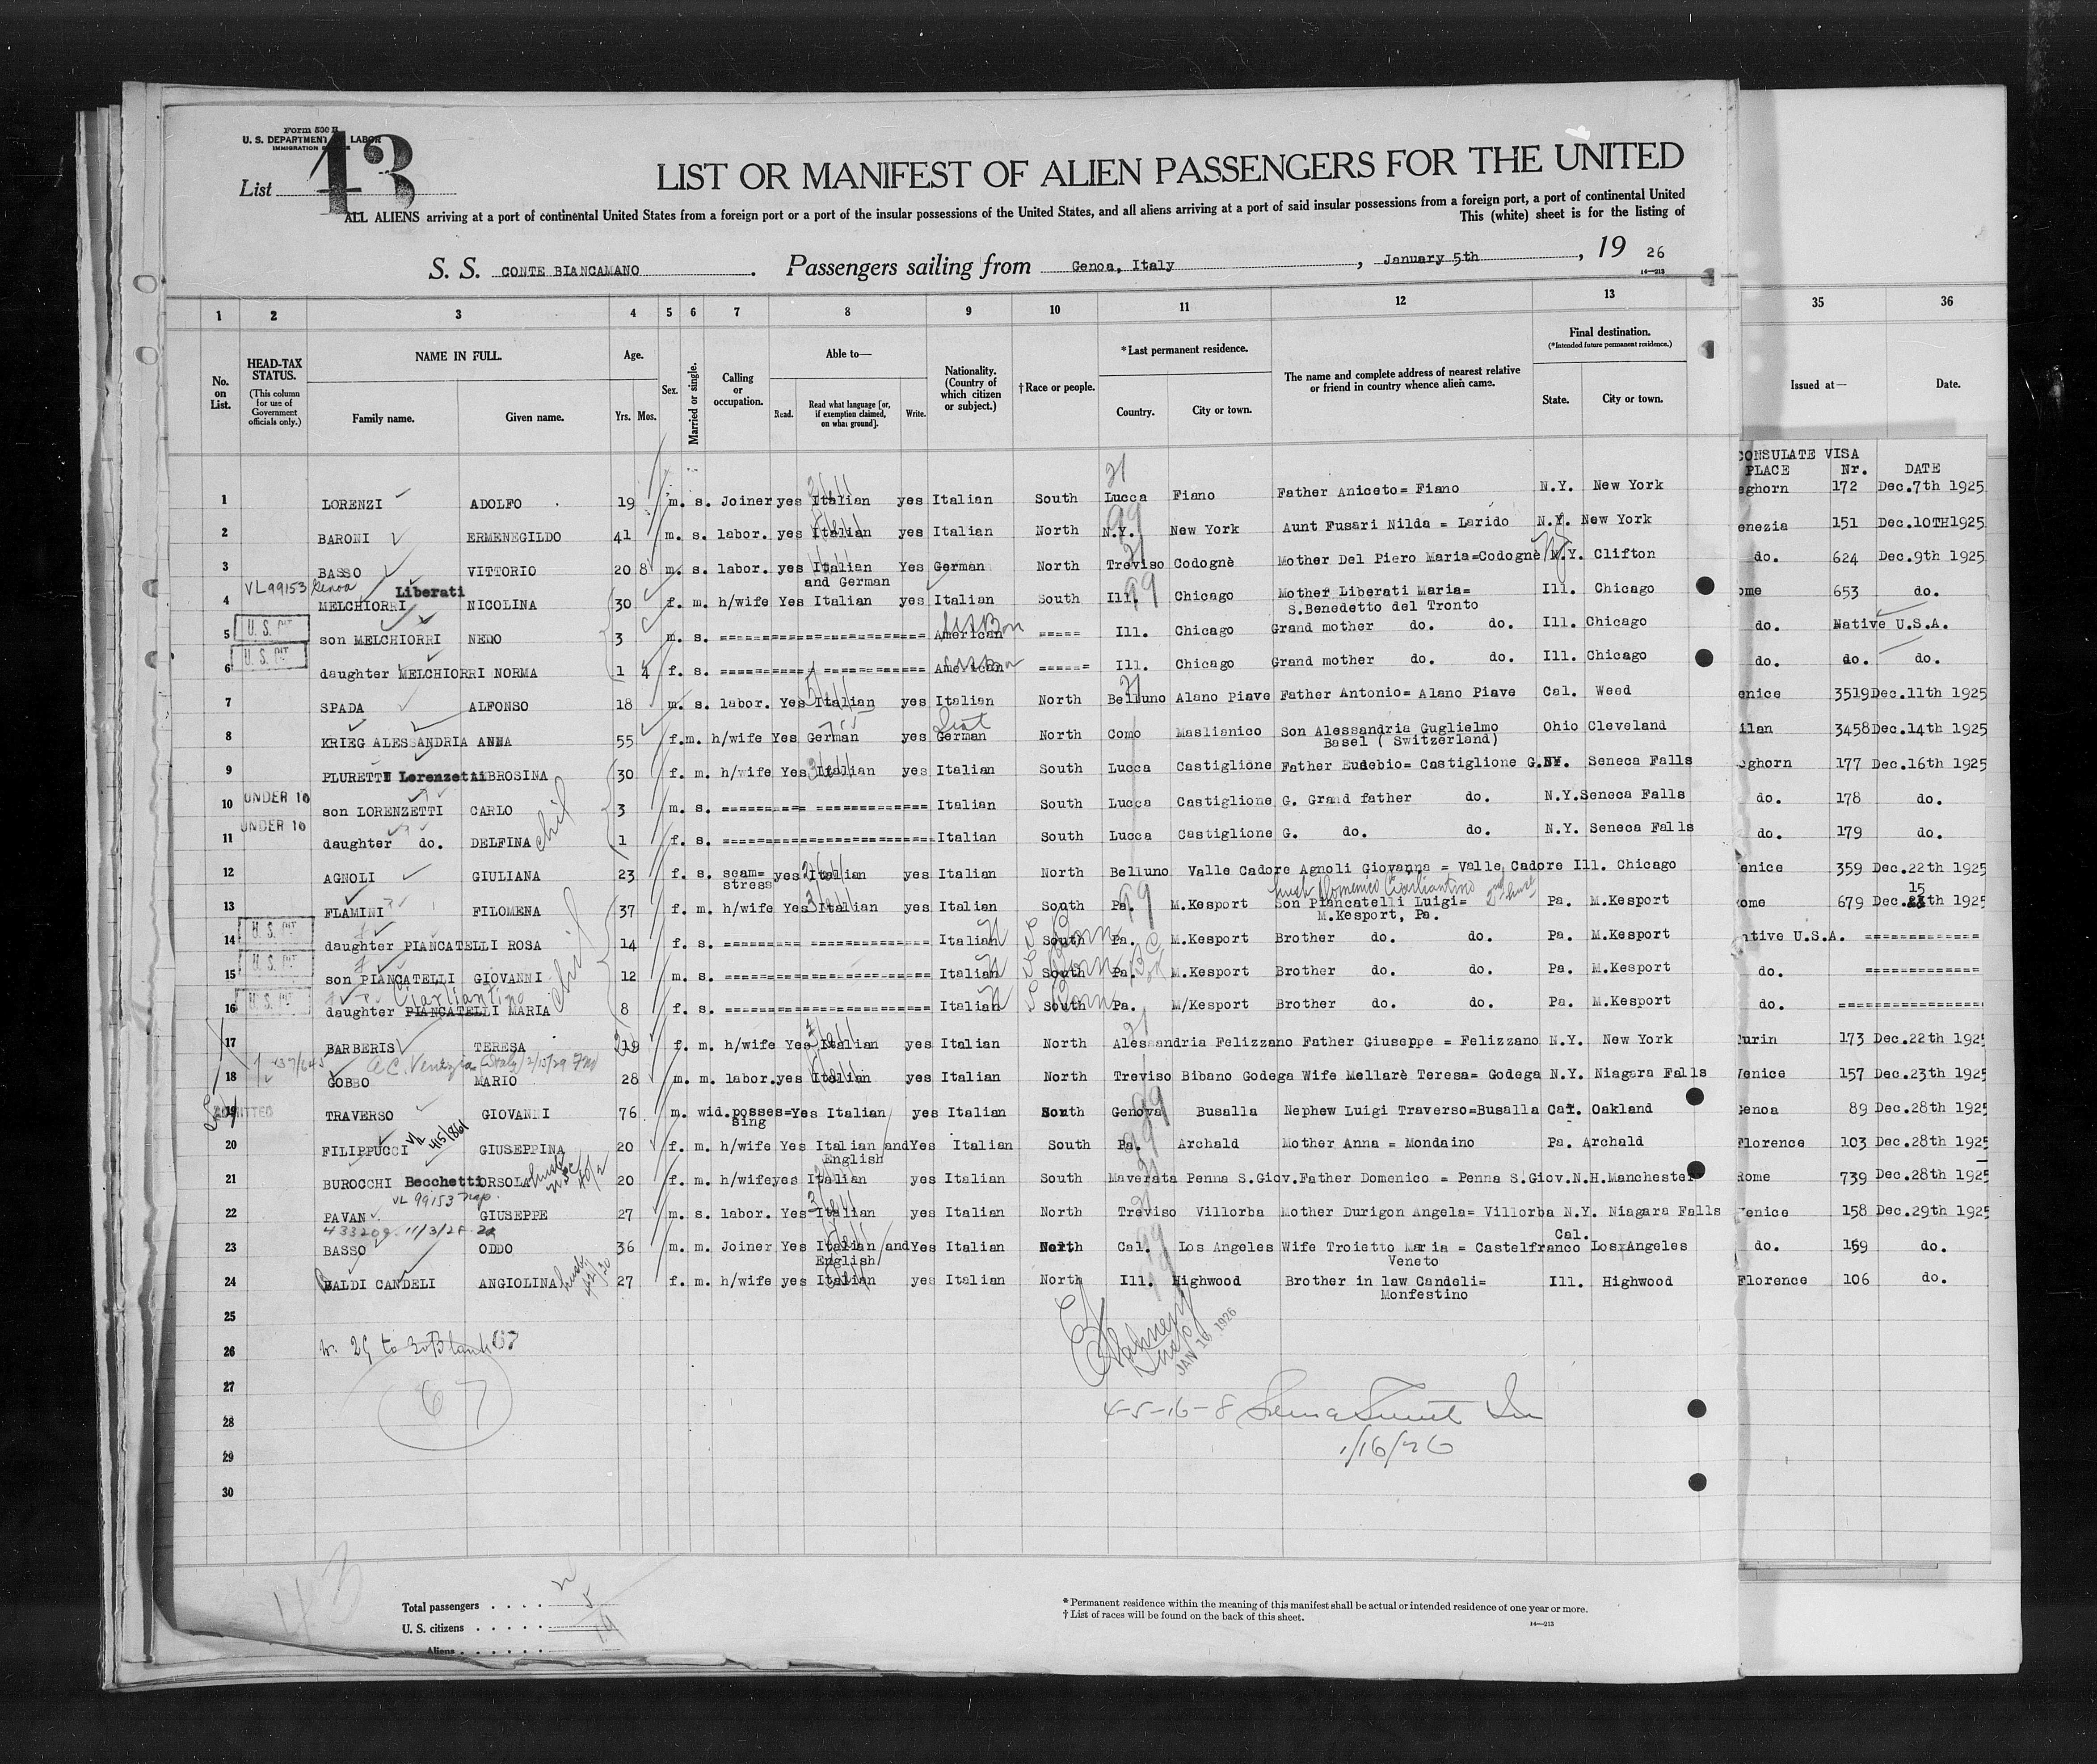 Form 500 B
U. S. DEPARTMENT OF LABOR
IMMIGRATION
List 43
LIST OR MANIFEST OF ALIEN PASSENGERS FOR THE UNITED
ALL ALIENS arriving at a port of continental United States from a foreign port or a port of the insular possessions of the United States, and all aliens arriving at a port of said insular possessions from a foreign port, a port of continental United
This (white) sheet is for the listing of
S. S. CONTE BIANCAMANO . Passengers sailing from Genoa, Italy , January 5th , 19 26
14—213
1 2 3 4 5 6 7 8 9 10 11 12 13 35 36
No. on List.
HEAD-TAX STATUS.
(This column for use of Government officials only.)
NAME IN FULL.
Family name. Given name.
Age.
Yrs. Mos.
Sex.
Married or single.
Calling or occupation.
Able to—
Read. Read what language [or, if exemption claimed, on what ground]. Write.
Nationality. (Country of which citizen or subject.)
†Race or people.
*Last permanent residence.
Country. City or town.
The name and complete address of nearest relative or friend in country whence alien came.
Final destination.
(*Intended future permanent residence.)
State. City or town.
Issued at— Date.
CONSULATE VISA
PLACE Nr. DATE
1 LORENZI ADOLFO 19 m. s. Joiner yes Italian yes Italian South Lucca Fiano Father Aniceto= Fiano N.Y. New York eghorn 172 Dec.7th 1925
2 BARONI ERMENEGILDO 41 m. s. labor. yes Italian yes Italian North N.Y. New York Aunt Fusari Nilda = Larido N.Y. New York enezia 151 Dec.10TH1925
3 BASSO VITTORIO 20 8 m. s. labor. yes Italian and German Yes German North Treviso Codognè Mother Del Piero Maria=Codognè N.Y. Clifton do. 624 Dec.9th 1925
VL99153 Genoa
4 MELCHIORRI Liberati NICOLINA 30 f. m. h/wife Yes Italian yes Italian South Ill. Chicago Mother Liberati Maria= S.Benedetto del Tronto Ill. Chicago ome 653 do.
5 U. S. CIT son MELCHIORRI NEDO 3 m. s. ======================== American ===== Ill. Chicago Grand mother do. do. Ill. Chicago do. Native U.S.A.
6 U. S. CIT daughter MELCHIORRI NORMA 1 4 f. s. ======================== American ====== Ill. Chicago Grand mother do. do. Ill. Chicago do. do. do.
7 SPADA ALFONSO 18 m. s. labor. Yes Italian yes Italian North Belluno Alano Piave Father Antonio= Alano Piave Cal. Weed enice 3519 Dec.11th 1925
8 KRIEG ALESSANDRIA ANNA 55 f. m. h/wife Yes German yes German North Como Maslianico Son Alessandria Guglielmo Basel ( Switzerland) Ohio Cleveland ilan 3458 Dec.14th 1925
9 PLURETTI Lorenzetti AMBROSINA 30 f. m. h/wife Yes Italian yes Italian South Lucca Castiglione Father Eudebio= Castiglione G. NY. Seneca Falls ghorn 177 Dec.16th 1925
10 UNDER 16 son LORENZETTI CARLO 3 m. s. ======================== Italian South Lucca Castiglione G. Grand father do. N.Y. Seneca Falls do. 178 do.
11 UNDER 16 daughter do. DELFINA 1 f. s. ======================== Italian South Lucca Castiglione G. do. do. N.Y. Seneca Falls do. 179 do.
12 AGNOLI GIULIANA 23 f. s. seam=stress yes Italian yes Italian North Belluno Valle Cadore Agnoli Giovanna = Valle Cadore Ill. Chicago enice 359 Dec.22th 1925
13 FLAMINI FILOMENA 37 f. m. h/wife Yes Italian yes Italian South Pa. M.Kesport Son Piancatelli Luigi= M.Kesport, Pa. Pa. M.Kesport ome 679 Dec. 15 th 1925
14 U. S. CIT daughter PIANCATELLI ROSA 14 f. s. ======================== Italian South Pa. M.Kesport Brother do. do. Pa. M.Kesport tive U.S.A. =============
15 U. S. CIT son PIANCATELLI GIOVANNI 12 m. s. ======================== Italian South Pa. M.Kesport Brother do. do. Pa. M.Kesport do. =============
16 U. S. CIT daughter PIANCATELLI Ciarliantino MARIA 8 f. s. ======================== Italian South Pa. M/Kesport Brother do. do. Pa. M.Kesport do. =================
17 BARBERIS TERESA 19 f. m. h/wife Yes Italian yes Italian North Alessandria Felizzano Father Giuseppe = Felizzano N.Y. New York urin 173 Dec.22th 1925
18 GOBBO MARIO 28 m. m. labor. yes Italian yes Italian North Treviso Bibano Godega Wife Mellarè Teresa= Godega N.Y. Niagara Falls enice 157 Dec.23th 1925
19 ADMITTED TRAVERSO GIOVANNI 76 m. wid. posses=sing Yes Italian yes Italian South Genova Busalla Nephew Luigi Traverso=Busalla Cal. Oakland enoa 89 Dec.28th 1925
20 FILIPPUCCI GIUSEPPINA 20 f. m. h/wife Yes Italian and English Yes Italian South Pa. Archald Mother Anna = Mondaino Pa. Archald Florence 103 Dec.28th 1925
21 BUROCCHI Becchetti ORSOLA 20 f. m. h/wife yes Italian yes Italian South Maverata Penna S.Giov. Father Domenico = Penna S.Giov. N.H. Manchester Rome 739 Dec.28th 1925
VL 99153 nap.
22 PAVAN GIUSEPPE 27 m. s. labor. Yes Italian yes Italian North Treviso Villorba Mother Durigon Angela= Villorba N.Y. Niagara Falls enice 158 Dec.29th 1925
23 BASSO ODDO 36 m. m. Joiner Yes Italian and English Yes Italian North Cal. Los Angeles Wife Troietto Maria = Castelfranco Veneto Cal. Los Angeles do. 159 do.
24 BALDI CANDELI ANGIOLINA 27 f. m. h/wife yes Italian yes Italian North Ill. Highwood Brother in law Candeli= Monfestino Ill. Highwood Florence 106 do.
25
26
27
28
29
30
JAN 16 1926
67
4-5-16-8
1/16/26
43
Total passengers . . . .
U. S. citizens . . . . . 5
Aliens . . . . . . 19
* Permanent residence within the meaning of this manifest shall be actual or intended residence of one year or more.
† List of races will be found on the back of this sheet.
14—213